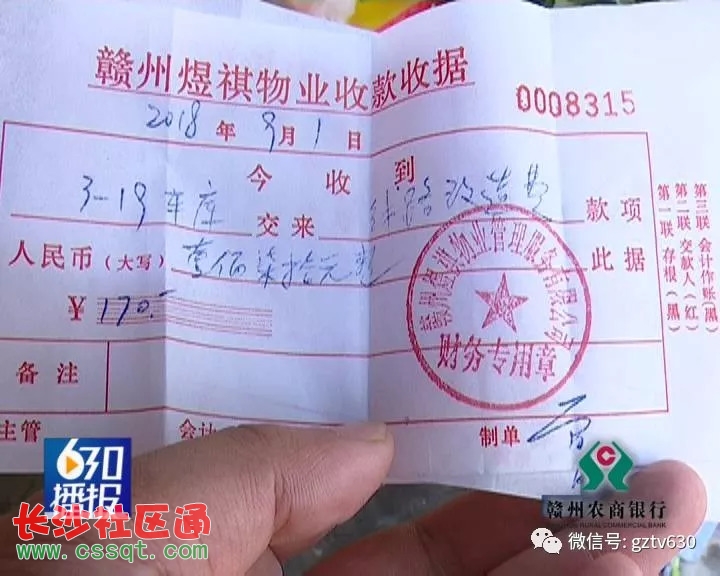 赣州煜祺物业收款收据
0008315
2018 年 9 月 1 日
今收到
3-19车库 交来 线路改造费 款项
人民币(大写) 壹佰柒拾元整 此据
¥ 170.-
备注
主管 会计 制单
第一联 存根(黑)
第二联 交款人(红)
第三联 会计作账(黑)
赣州煜祺物业管理服务有限公司
财务专用章
630
播报
长沙社区通
www.cssqt.com
赣州农商银行
RURAL COMMERCIAL BANK
微信号: gztv630